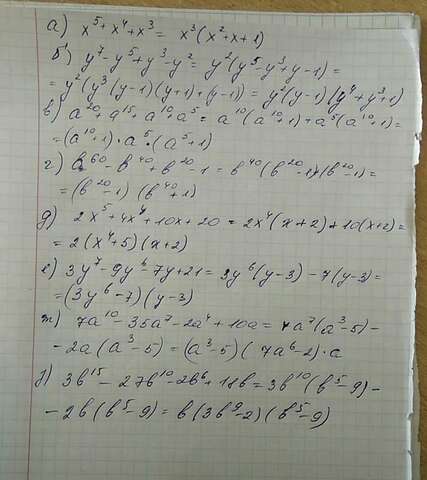 а) x⁵+x⁴+x³ = x³(x²+x+1)
б) y⁷-y⁵+y³-y² = y²(y⁵-y³+y-1) =
= y²(y³(y-1)(y+1)+(y-1)) = y²(y-1)(y⁴+y³+1)
в) a²⁰+a¹⁵+a¹⁰+a⁵ = a¹⁰(a¹⁰+1)+a⁵(a¹⁰+1) =
= (a¹⁰+1)·a⁵(a⁵+1)
г) b⁶⁰-b⁴⁰+b²⁰-1 = b⁴⁰(b²⁰-1)+(b²⁰-1) =
= (b²⁰-1)(b⁴⁰+1)
д) 2x⁵+4x⁴+10x+20 = 2x⁴(x+2)+10(x+2) =
= 2(x⁴+5)(x+2)
е) 3y⁷-9y⁶-7y+21 = 3y⁶(y-3)-7(y-3) =
= (3y⁶-7)(y-3)
ж) 7a¹⁰-35a⁷-2a⁴+10a = 7a⁷(a³-5)-
-2a(a³-5) = (a³-5)(7a⁶-2)·a
з) 3b¹⁵-27b¹⁰-2b⁶+18b = 3b¹⁰(b⁵-9)-
-2b(b⁵-9) = b(3b⁹-2)(b⁵-9)